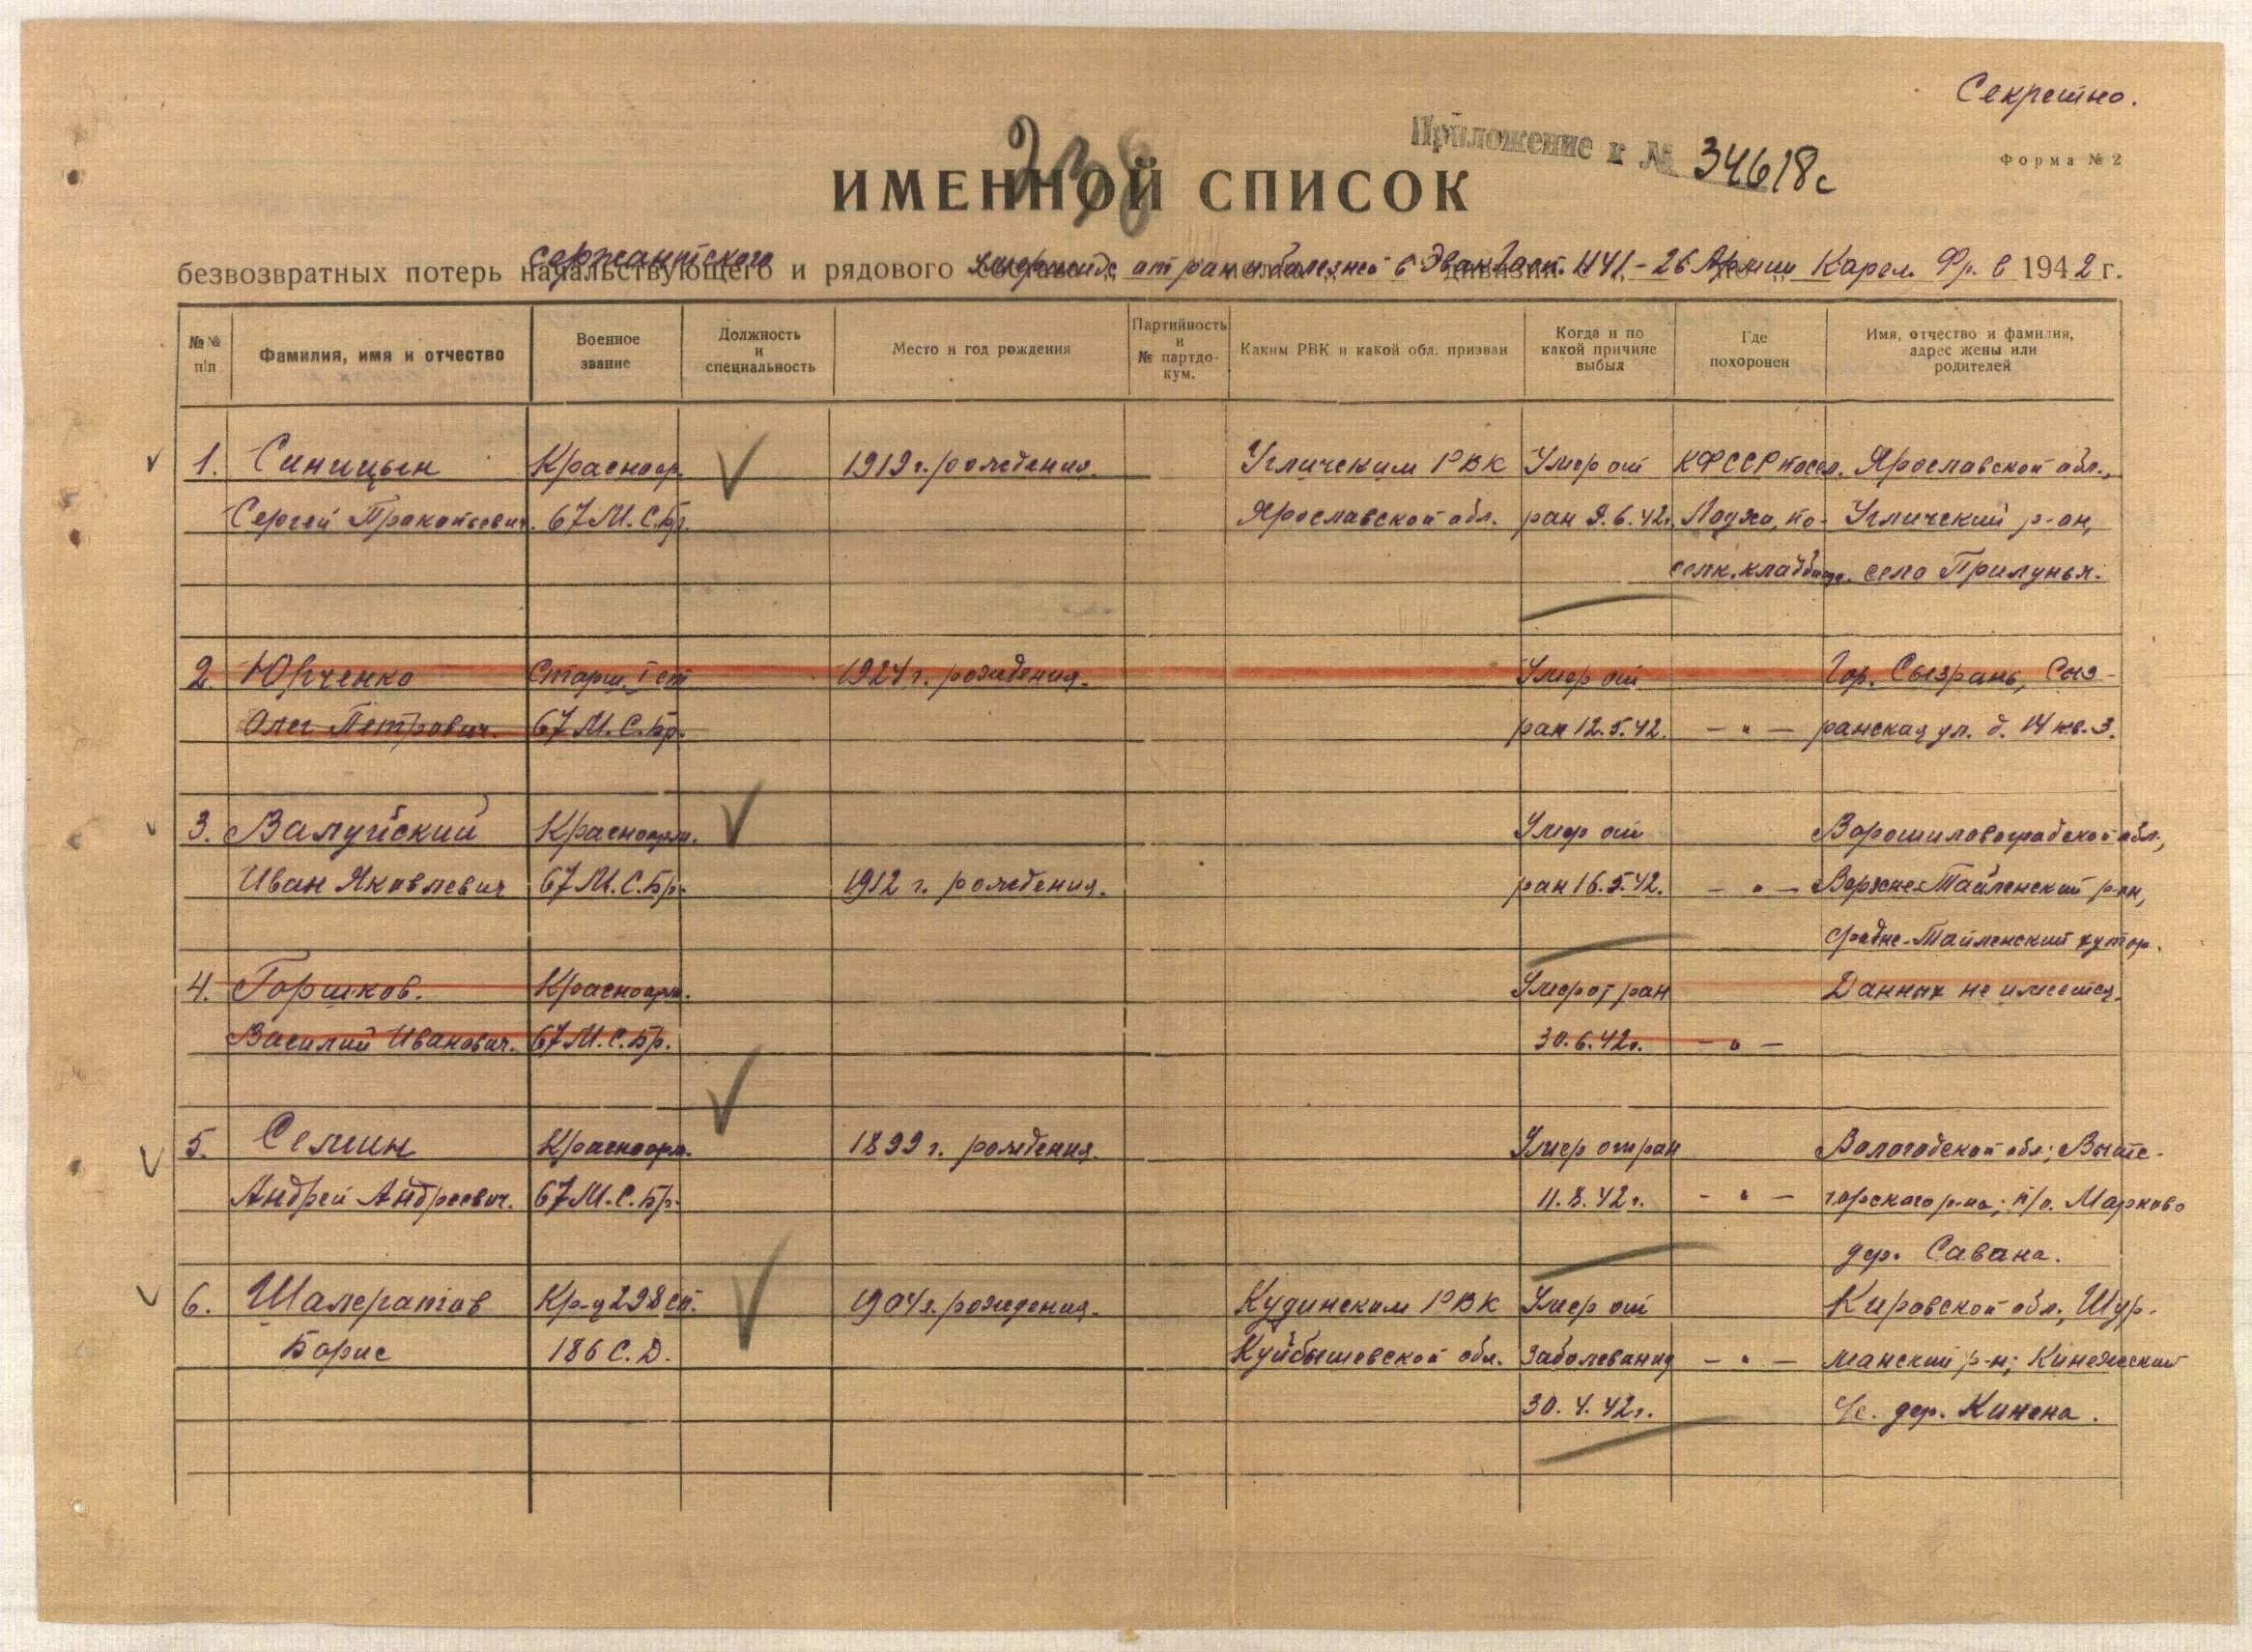 Секретно.
Приложение к № 34618с
Форма № 2
238
ИМЕННОЙ СПИСОК
сержантского
безвозвратных потерь начальствующего и рядового умерших от ран и болезней в Эвакгосп. 1441-26 Армии Карел. Фр. в 1942 г.
№№ п/п
Фамилия, имя и отчество
Военное звание
Должность и специальность
Место и год рождения
Партийность и № партдокум.
Каким РВК и какой обл. призван
Когда и по какой причине выбыл
Где похоронен
Имя, отчество и фамилия, адрес жены или родителей
1. Синицын Красноар. 1919 г. рождения. Угличским РВК Умер от КФССР посел. Ярославской обл.,
Сергей Прокопьевич. 67 М.С.Бр. Ярославской обл. ран 9.6.42г. Лоухи, по- Угличский р-он,
селк. кладбище. село Прилунья.
2. Юрченко Старш. I ст 1924 г. рождения. Умер от Гор. Сызрань, Сыз-
Олег Петрович. 67 М.С.Бр. ран 12.5.42. — " — ранская ул. д. 14 кв. 3.
3. Валуйский Красноарм. Умер от Ворошиловоградской обл.,
Иван Яковлевич 67 М.С.Бр. 1912 г. рождения. ран 16.5.42. — " — Верхне-Тайленский р-он,
Средне-Тайленский хутор.
4. Горшков. Красноарм. Умер от ран Данных не имеется.
Василий Иванович. 67 М.С.Бр. 30.6.42г. — " —
5. Семин Красноарм. 1899 г. рождения. Умер от ран Вологодской обл; Выте-
Андрей Андреевич. 67 М.С.Бр. 11.8.42г. — " — горского р-на; п/о. Марково
дер. Савана.
6. Шалерапов Кр-ц 298 сп. 1904г. рождения. Кудинским РВК Умер от Кировской обл., Шур-
Борис 186 С.Д. Куйбышевской обл. заболевания — " — манский р-н; Кинежский
30.4.42г. с/с. дер. Кинена.